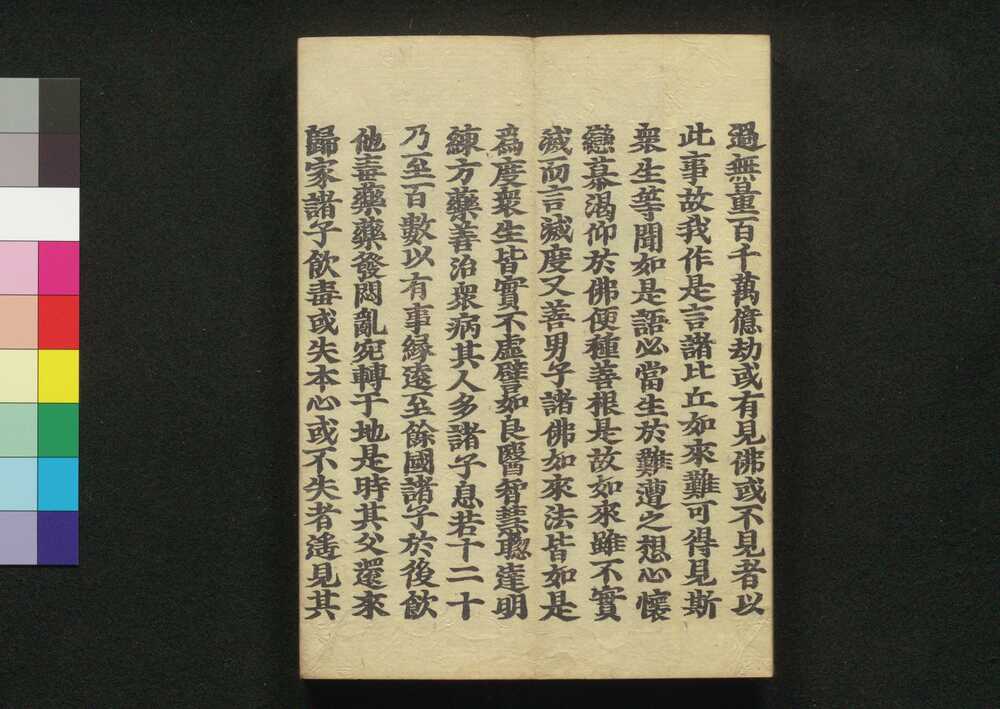 過無量百千萬億劫或有見佛或不見者以
此事故我作是言諸比丘如來難可得見斯
衆生等聞如是語必當生於難遭之想心懷
戀慕渴仰於佛便種善根是故如來雖不實
滅而言滅度又善男子諸佛如來法皆如是
爲度衆生皆實不虛譬如良醫智慧聰達明
練方藥善治衆病其人多諸子息若十二十
乃至百數以有事緣遠至餘國諸子於後飲
他毒藥藥發悶亂宛轉于地是時其父還來
歸家諸子飲毒或失本心或不失者遙見其